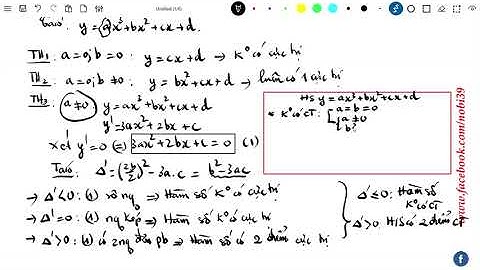 Untitled (1/6)
y = ax³+bx²+cx+d.
TH1: a=0; b=0 : y=cx+d → K° có cực trị
TH2: a=0; b≠0 : y=bx²+cx+d → luôn có 1 cực trị
TH3: a≠0 y=ax³+bx²+cx+d
y'=3ax²+2bx+c
xét y'=0 ⇔ 3ax²+2bx+c=0 (1)
Δ'=(2b/2)²-3a.c = b²-3ac
→ Δ'<0: (1) vô ng ⇒ Hàm số K° có cực trị
→ Δ'=0: (1) ng Kép ⇒ Hàm số K° có cực trị
→ Δ'>0: (1) có 2ng pb ⇒ Hàm số có 2 điểm cực trị
Δ'≤0: Hàm số K° có CT
Δ'>0 H/S có 2 điểm CT
HS y=ax³+bx²+cx+d
* K° có CT: [ a=b=0
{ a≠0
b²
www.facebook.com/nobi39